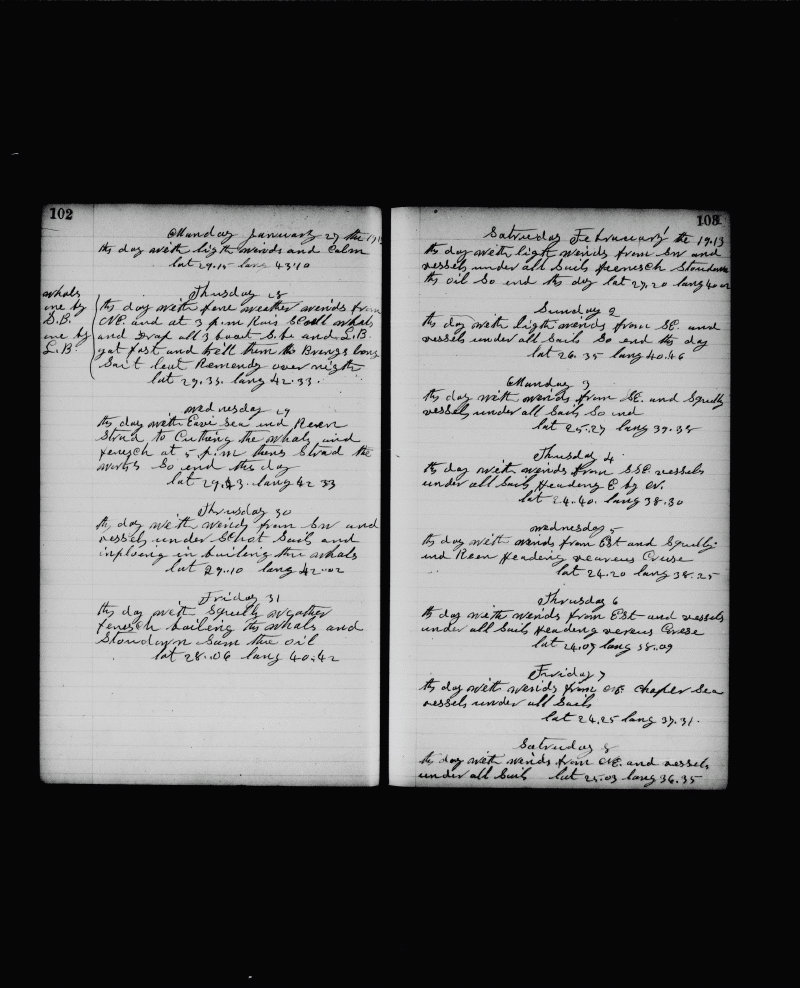 102
Munday January 27 the 1913
ths day with ligth winds and Calm
lat 29.15 lang 43.10
Thusday 28
whals
one by
S.B.
one by
L.B.
ths day with fine weether winds from
NE. and at 3 p.m Rais Scoull whals
and Drap all 3 boat S.be and L.B.
gat fast and kill them to Brengs long
Sait leut Remendg over nigth
lat 29.33. lang 42.33.
wednesday 29
ths day with Eavi Sea and Reen
Strad to Cuthing the whals and
fenesch at 5 p.m thens Strad the
works So end this day
lat 29.23. lang 42 33
Thrusday 30
ths day with wends from SW and
vessels under Schot Sails and
inploing in builing the whals
lat 29..10 lang 42..02
Friday 31
ths day with Squelly weather
fenesch boiling ths whals and
Stowdown Sum the oil
lat 28..06 lang 40.42
103
Satruday February 1 the 1913
ths day with ligth wends from SW and
vessels under all Sails feenesch Stowdown
the oil So end ths day lat 27.20 lang 40
Sunday 2
ths day with ligth wends from SE. and
vessels under all Sails So end ths day
lat 26.35 lang 40.46
Munday 3
ths day with wends from SE. and Squelly
vessels under all Sails So end
lat 25.27 lang 39.38
Thusday 4
ths day with wends from SSE vessels
under all Sails Heading E by N.
lat 24.40. lang 38.30
wednesday 5
ths day with winds from ESt and Squelly
and Reen Heading veareus Cruse
lat 24.20 lang 38.25
Thrusday 6
ths day with wends from ESt and vessels
under all Sails Heading vereus Cruse
lat 24.07 lang 38.09
Friday 7
ths day with wends from NE chapler Sea
vessels under all Sails
lat 24.25 lang 37.31.
Satruday 8
ths day with wends from NE. and vessels
under all Sails lat 25.03 lang 36.35